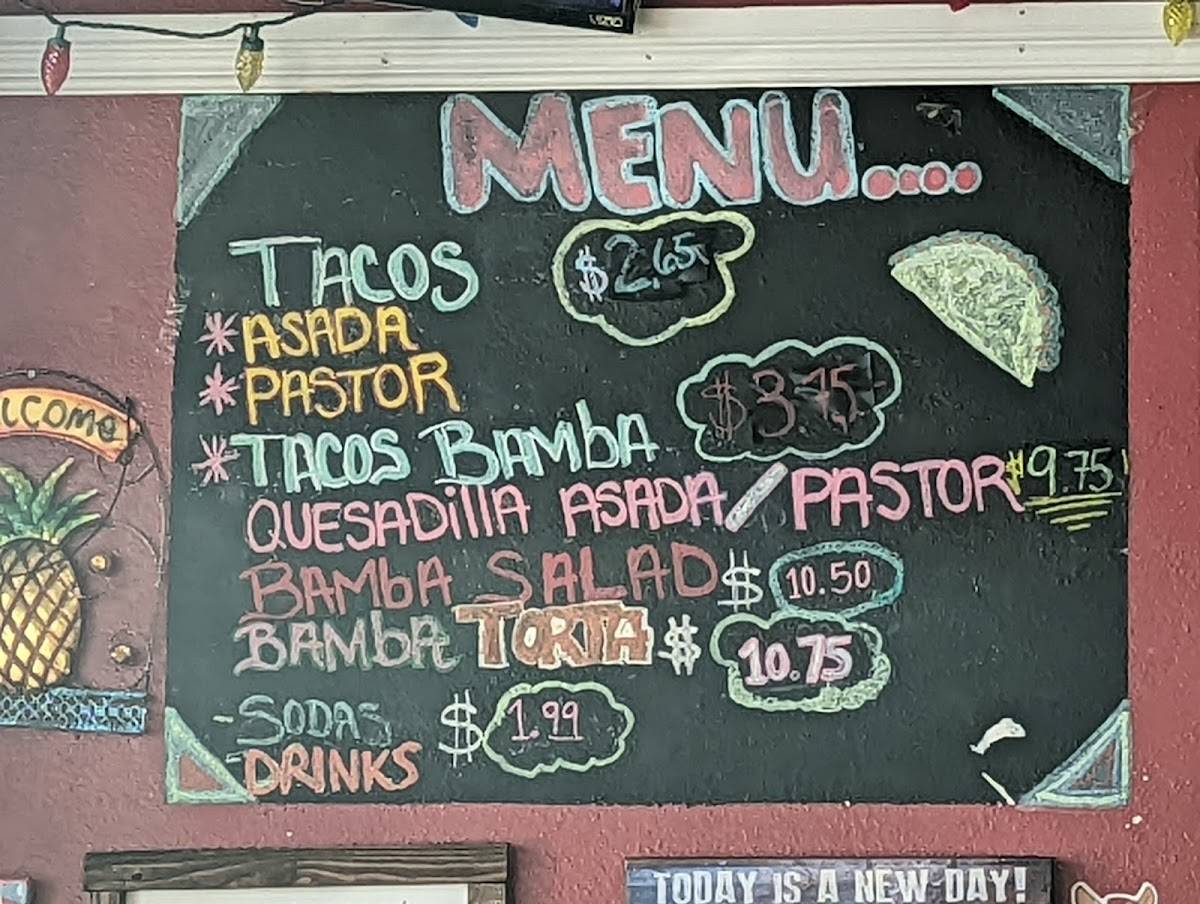 MENU....
TACOS $2.65
*ASADA
*PASTOR
*TACOS BAMbA $3.75
QUESADillA ASADA/PASTOR $9.75
BAMbA SALAD $ 10.50
BAMbA TORTA $ 10.75
-SODAS $ 1.99
-DRINKS
TODAY IS A NEW DAY!